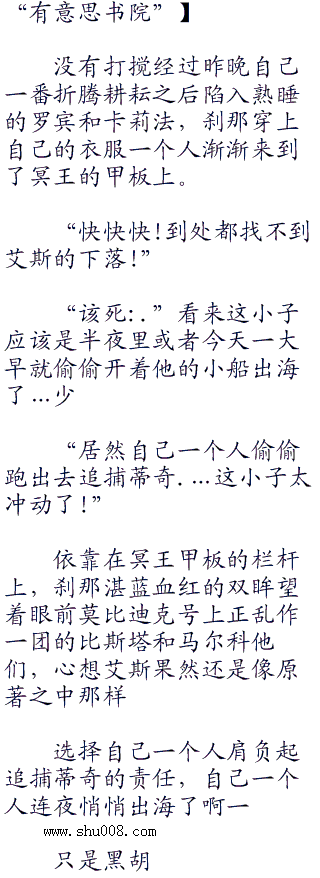 “有意思书院”】
没有打搅经过昨晚自己
一番折腾耕耘之后陷入熟睡
的罗宾和卡莉法，刹那穿上
自己的衣服一个人渐渐来到
了冥王的甲板上。
“快快快!到处都找不到
艾斯的下落!”
“该死:.”看来这小子
应该是半夜里或者今天一大
早就偷偷开着他的小船出海
了…少
“居然自己一个人偷偷
跑出去追捕蒂奇.…这小子太
冲动了!”
依靠在冥王甲板的栏杆
上，刹那湛蓝血红的双眸望
着眼前莫比迪克号上正乱作
一团的比斯塔和马尔科他
们，心想艾斯果然还是像原
著之中那样
选择自己一个人肩负起
追捕蒂奇的责任，自己一个
人连夜悄悄出海了啊一
www.shu008.com
只是黑胡